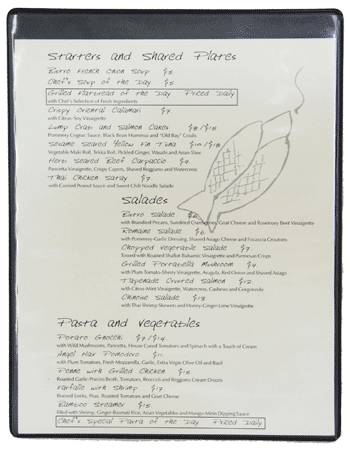 Starters and Shared Plates
Bistro French Onion Soup $5
Chef's Soup of the Day $5
Grilled Flatbread of the Day Priced Daily
with Chef's Selection of Fresh Ingredients
Crispy Oriental Calamari $7
with Citrus-Soy Vinaigrette
Lump Crab and Salmon Cakes $8/$15
Pommery Cognac Sauce, Black Bean Hummus and "Old Bay" Coulis
Sesame Seared Yellow Fin Tuna $10/$18
Vegetable Maki Roll, Tekka Roll, Pickled Ginger, Wasabi and Asian Slaw
Herb Seared Beef Carpaccio $9
Pancetta Vinaigrette, Crispy Capers, Shaved Reggiano and Watercress
Thai Chicken Satay $7
with Curried Peanut Sauce and Sweet Chili Noodle Salade
Salades
Bistro Salade
with Brandied Pecans, Sundried Cranberries, Goat Cheese and Rosemary Beet Vinaigrette
Romaine Salade $6
with Pommery-Garlic Dressing, Shaved Asiago Cheese and Focaccia Croutons
Chopped Vegetable Salade $7
Tossed with Roasted Shallot Balsamic Vinaigrette and Parmesan Crisps
Grilled Portabella Mushroom $9
with Plum Tomato-Sherry Vinaigrette, Arugula, Red Onion and Shaved Asiago
Tapenade Crusted Salmon $12
with Citrus-Mint Vinaigrette, Watercress, Cashews and Gorgonzola
Chinoise Salade $13
with Thai Shrimp Skewers and Honey-Ginger-Lime Vinaigrette
Pasta and Vegetables
Potato Gnocchi $7/$14
with Wild Mushrooms, Pancetta, House Cured Tomatoes and Spinach with a Touch of Cream
Angel Hair Pomodoro $11
with Plum Tomatoes, Fresh Mozzarella, Garlic, Extra Virgin Olive Oil and Basil
Penne with Grilled Chicken $15
Roasted Garlic-Porcini Broth, Tomatoes, Broccoli and Reggiano Cream Drizzle
Farfalle with Shrimp $17
Braised Leeks, Peas, Roasted Tomatoes and Goat Cheese
Bamboo Steamer $15
Filled with Shrimp, Ginger-Basmati Rice, Asian Vegetables and Mango-Mirin Dipping Sauce
Chef's Special Pasta of the Day Priced Daily